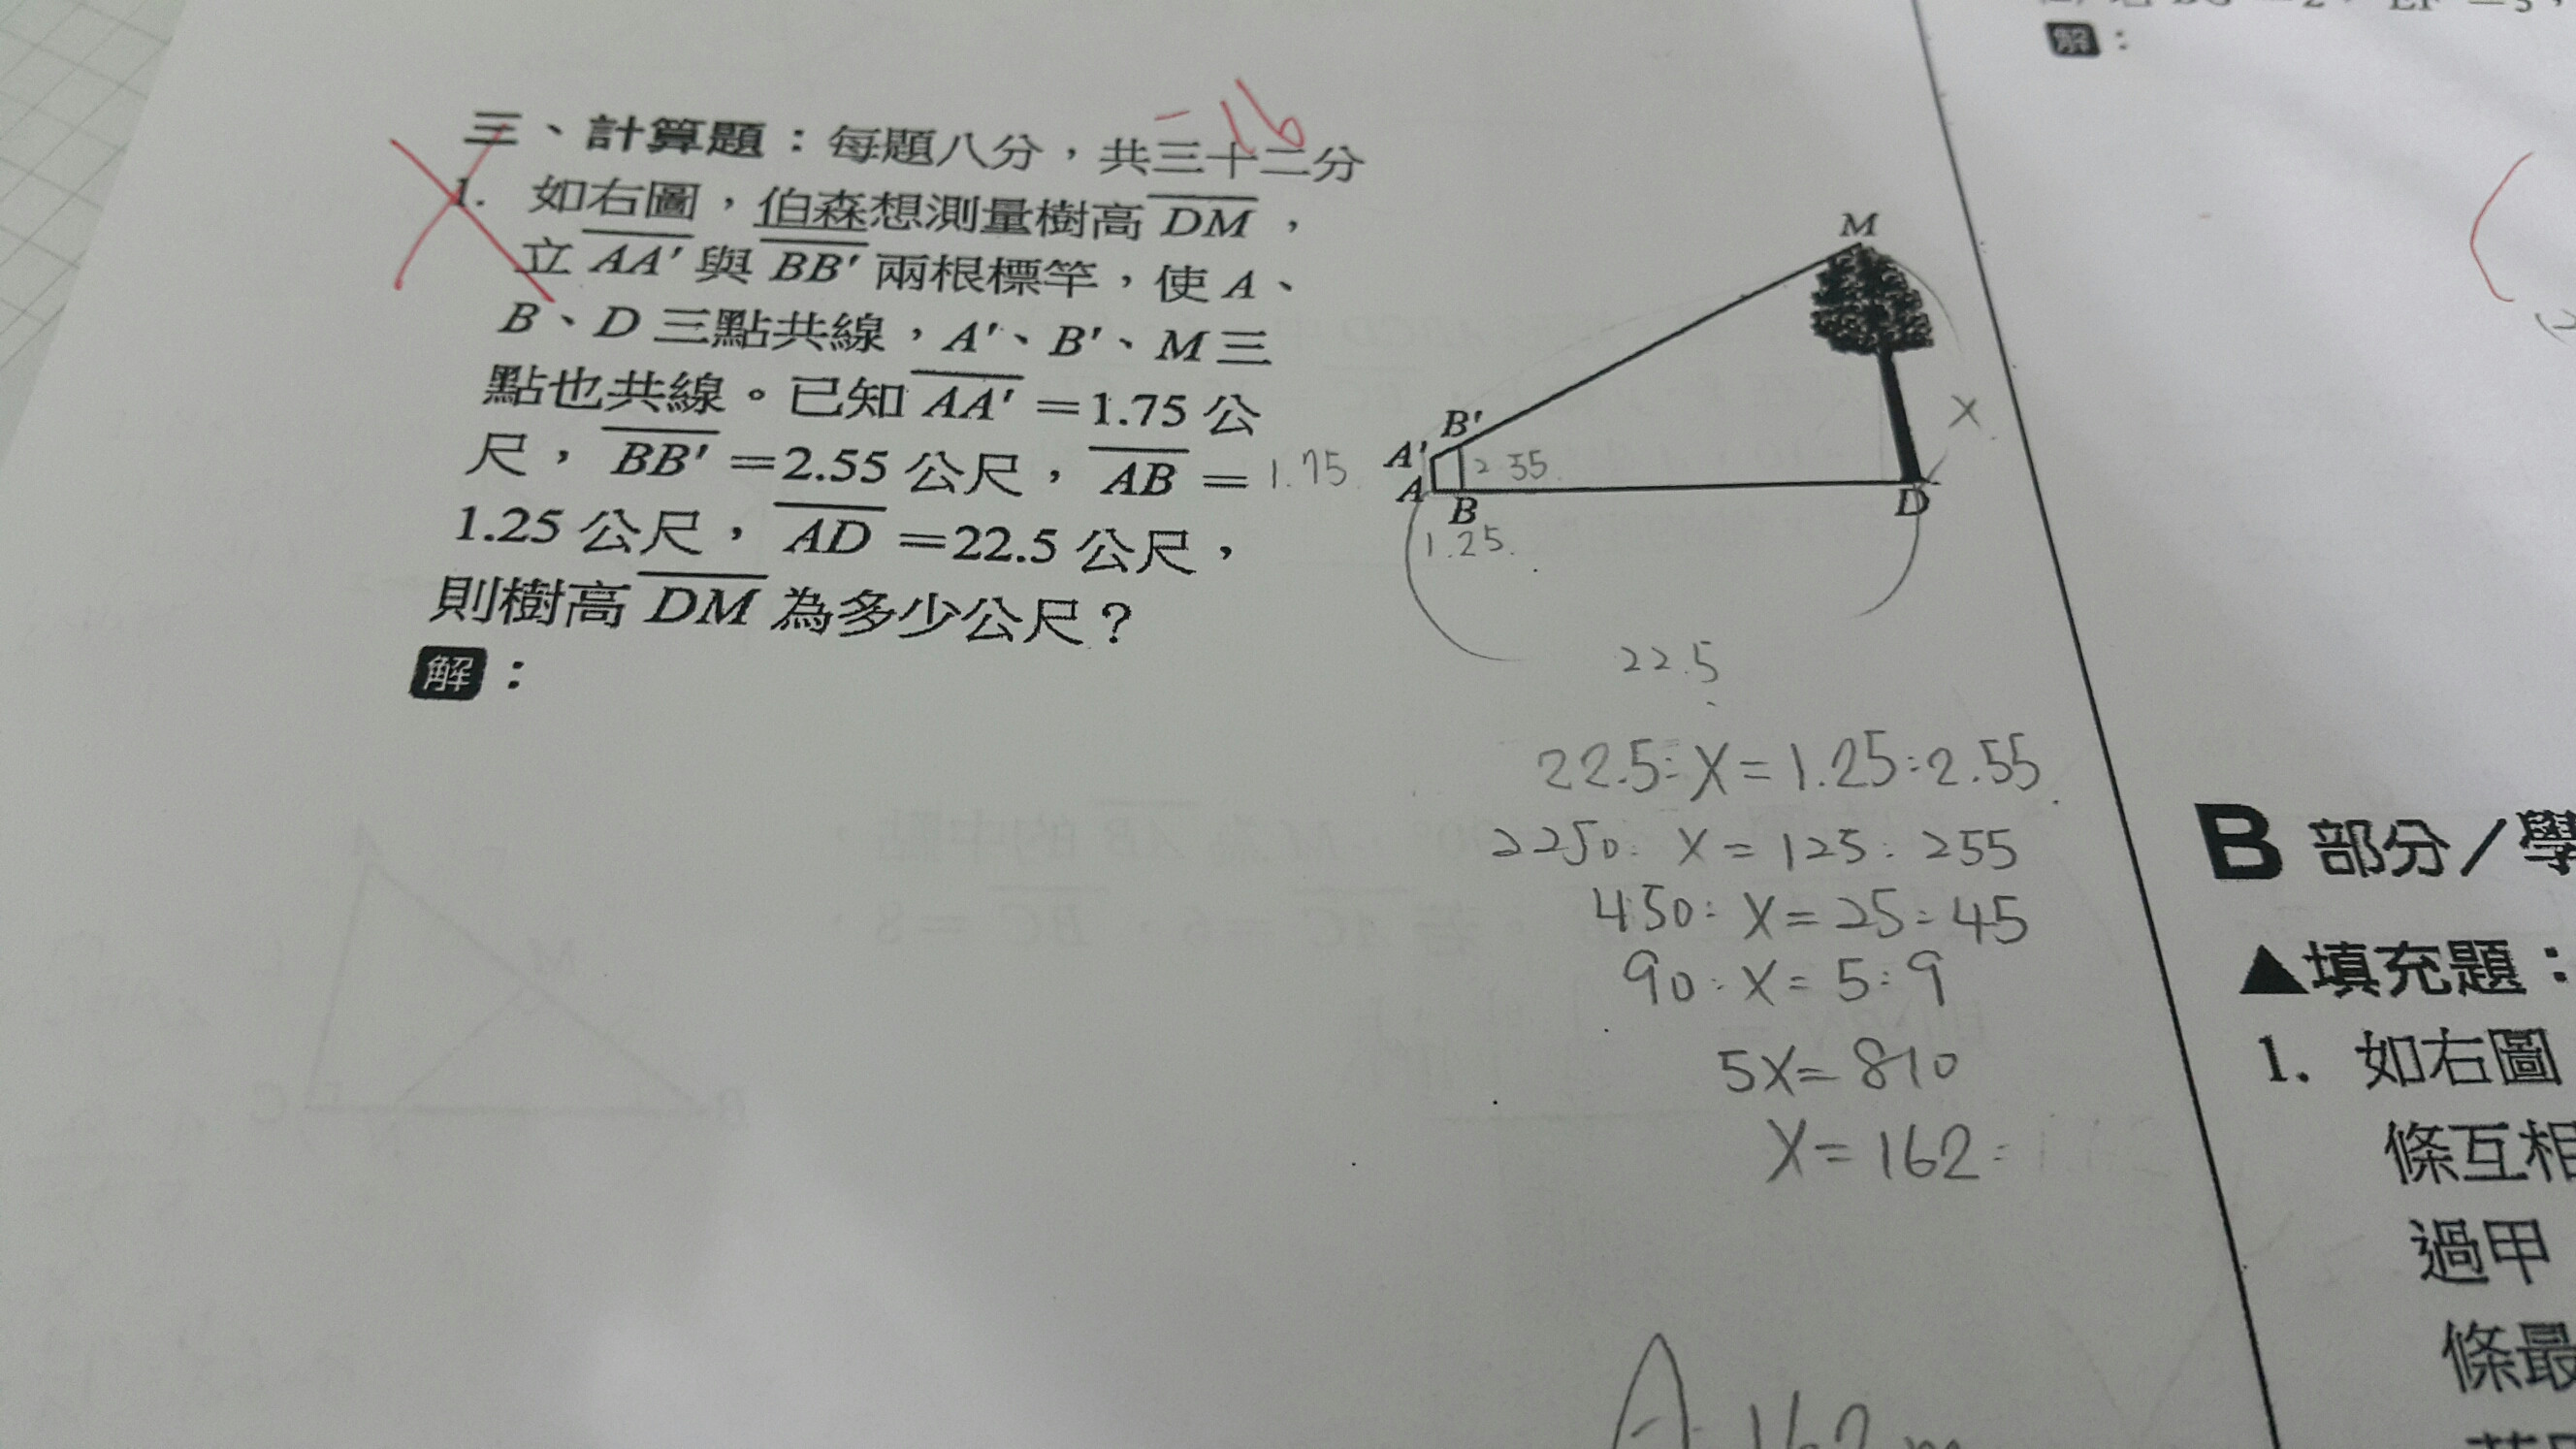 解：
三、計算題：每題八分，共三十二分
-16
1. 如右圖，伯森想測量樹高 DM，
立 AA' 與 BB' 兩根標竿，使 A、
B、D 三點共線，A'、B'、M 三
點也共線。已知 AA' =1.75 公
尺，BB' =2.55 公尺，AB =
1.25 公尺，AD =22.5 公尺，
則樹高 DM 為多少公尺？
解：
M
X
B'
A'
1.75
2.55
A
B
D
1.25
22.5
22.5:X=1.25:2.55
2250:X=125:255
450:X=25:45
90:X=5:9
5X=810
X=162
A 162m
B 部分／學
▲填充題：
1. 如右圖
條互相
過甲
條最